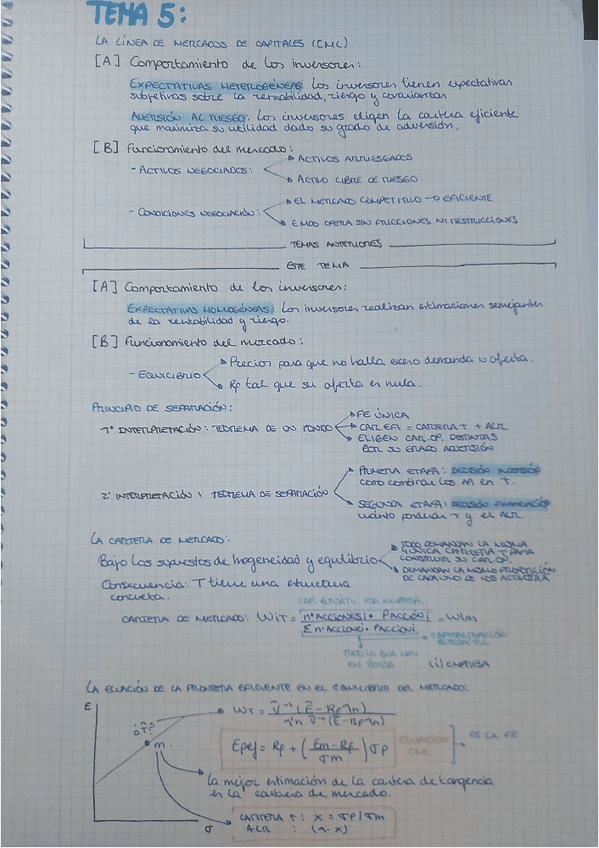 TEMA 5:
LA LÍNEA DE MERCADOS DE CAPITALES (CML)
[A] Comportamiento de los inversores:
EXPECTATIVAS HETEROGÉNEAS: Los inversores tienen expectativas
subjetivas sobre la rentabilidad, riesgo y covarianzas
AVERSIÓN AL RIESGO: Los inversores eligen la cartera eficiente
que maximiza su utilidad dado su grado de adversión.
[B] Funcionamiento del mercado:
- ACTIVOS NEGOCIADOS:
ACTIVOS ARRIESGADOS
ACTIVO LIBRE DE RIESGO
- CONDICIONES NEGOCIACIÓN:
EL MERCADO COMPETITIVO → EFICIENTE
EMOS OPERA SIN FRICCIONES NI RESTRICCIONES
TEMAS ANTERIORES
ESTE TEMA
[A] Comportamiento de los inversores:
EXPECTATIVAS HOMOGÉNEAS: Los inversores realizan estimaciones semejantes
de la rentabilidad y riesgo.
[B] Funcionamiento del mercado:
- EQUILIBRIO
Precios para que no halla exceso demanda u oferta.
Rf tal que su oferta es nula.
PRINCIPIO DE SEPARACIÓN:
1ª INTERPRETACIÓN: TEOREMA DE UN FONDO
FE ÚNICA
CAR. EFI = CARTERA T + ALR
ELIGEN CAR. OP. DISTINTAS
POR SU GRADO ADVERSIÓN
2ª INTERPRETACIÓN: TEOREMA DE SEPARACIÓN
PRIMERA ETAPA: DECISIÓN INVERSIÓN
como combinar los AA en T.
SEGUNDA ETAPA: DECISIÓN FINANCIACIÓN
cuánto ponderar T y el ALR
LA CARTERA DE MERCADO:
Bajo los supuestos de homogeneidad y equilibrio
TODO DEMANDAN LA MISMA
ÚNICA CARTERA T PARA
CONSTITUIR SU CAR. OP.
DEMANDAN LA MISMA PROPORCIÓN
DE CADA UNO DE LOS ACTIVOS AA
Consecuencia: T tiene una estructura
concreta.
CAP. BURSÁTIL ESA EMPRESA
CARTERA DE MERCADO: WiT = nº ACCIONES i · P ACCIÓN i / Σ nº ACCIONES i · P ACCIÓN i = Wim
CAPITALIZACIÓN
BURSÁTIL
TODO LO QUE HAY
EN BOLSA
LA ECUACIÓN DE LA FRONTERA EFICIENTE EN EL EQUILIBRIO DEL MERCADO:
E
¿T?
m.
σ
WT = V⁻¹(E - Rf 1n) / 1'n V⁻¹(E - Rf 1n)
Epef = Rf + (Em - Rf / σm) σp
ECUACIÓN
CML
ES LA FE
La mejor estimación de la cartera de tangencia
es la cartera de mercado.
CARTERA T: X = σp/σm
ALR : (1-X)